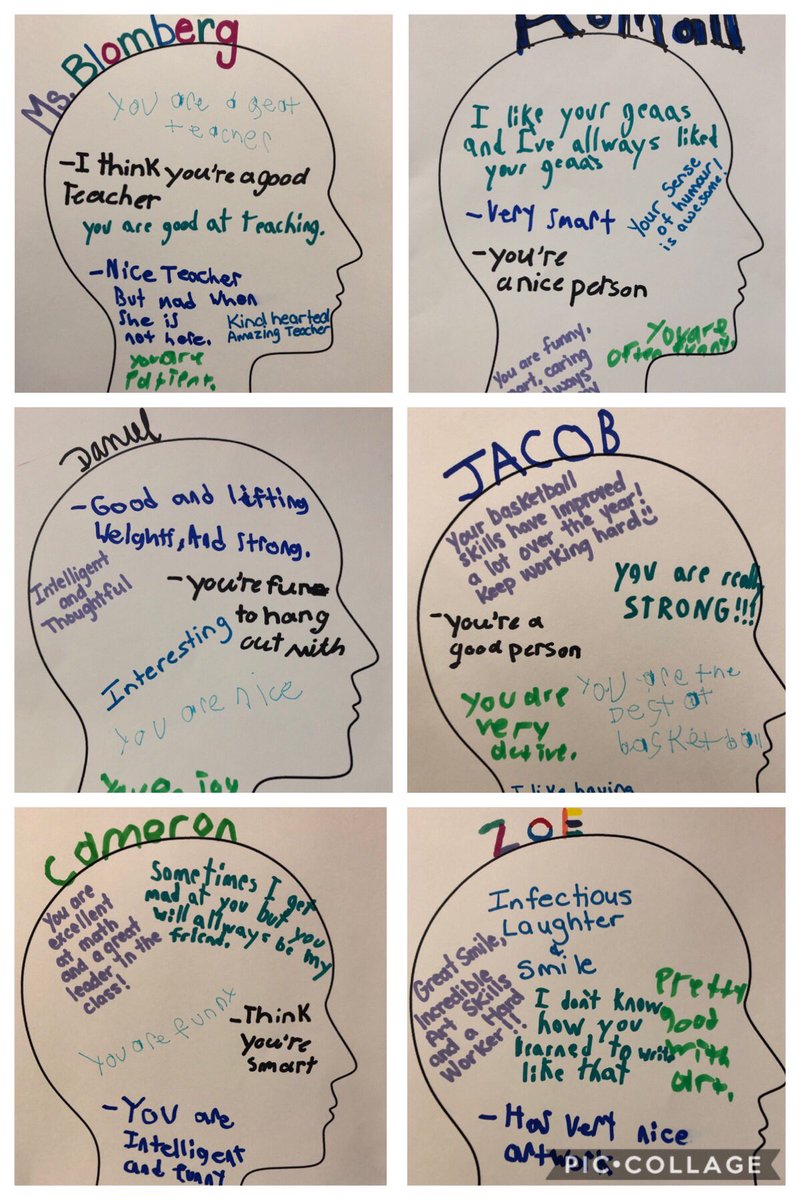 Ms. Blomberg
You are a great
teacher
-I think you're a good
Teacher
you are good at teaching.
-Nice Teacher
But mad when
she is
not here.
Kind hearted
Amazing Teacher
you are
patient.
I like your geaas
and I've allways liked
your geaas
Your Sense
of humour
is awesome!
-Very smart
-you're
a nice person
You are
often funny.
You are funny,
smart, caring
always
Daniel
-Good and lifting
Weights, And strong.
Intelligent
and
Thoughtful
-you're fun
to hang
out with
Interesting
You are nice
You enjoy
JACOB
Your basketball
skills have improved
a lot over the year!
Keep working hard
you are really
STRONG!!!
-you're a
good person
You are
very
active.
You are the
best at
basketball
I like having
Cameron
You are
excellent
at math
and a great
leader in the
class!
Sometimes I get
mad at you but you
will allways be my
friend.
You are funny
-Think
you're
smart
-You are
Intelligent
and funny
ZOE
Infectious
Laughter
&
Smile
Great Smile,
Incredible
Art Skills
and a Hard
Worker!!
I don't know
how you
learned to write
like that
Pretty
good
with
art.
-Has very nice
artwork
PIC•COLLAGE